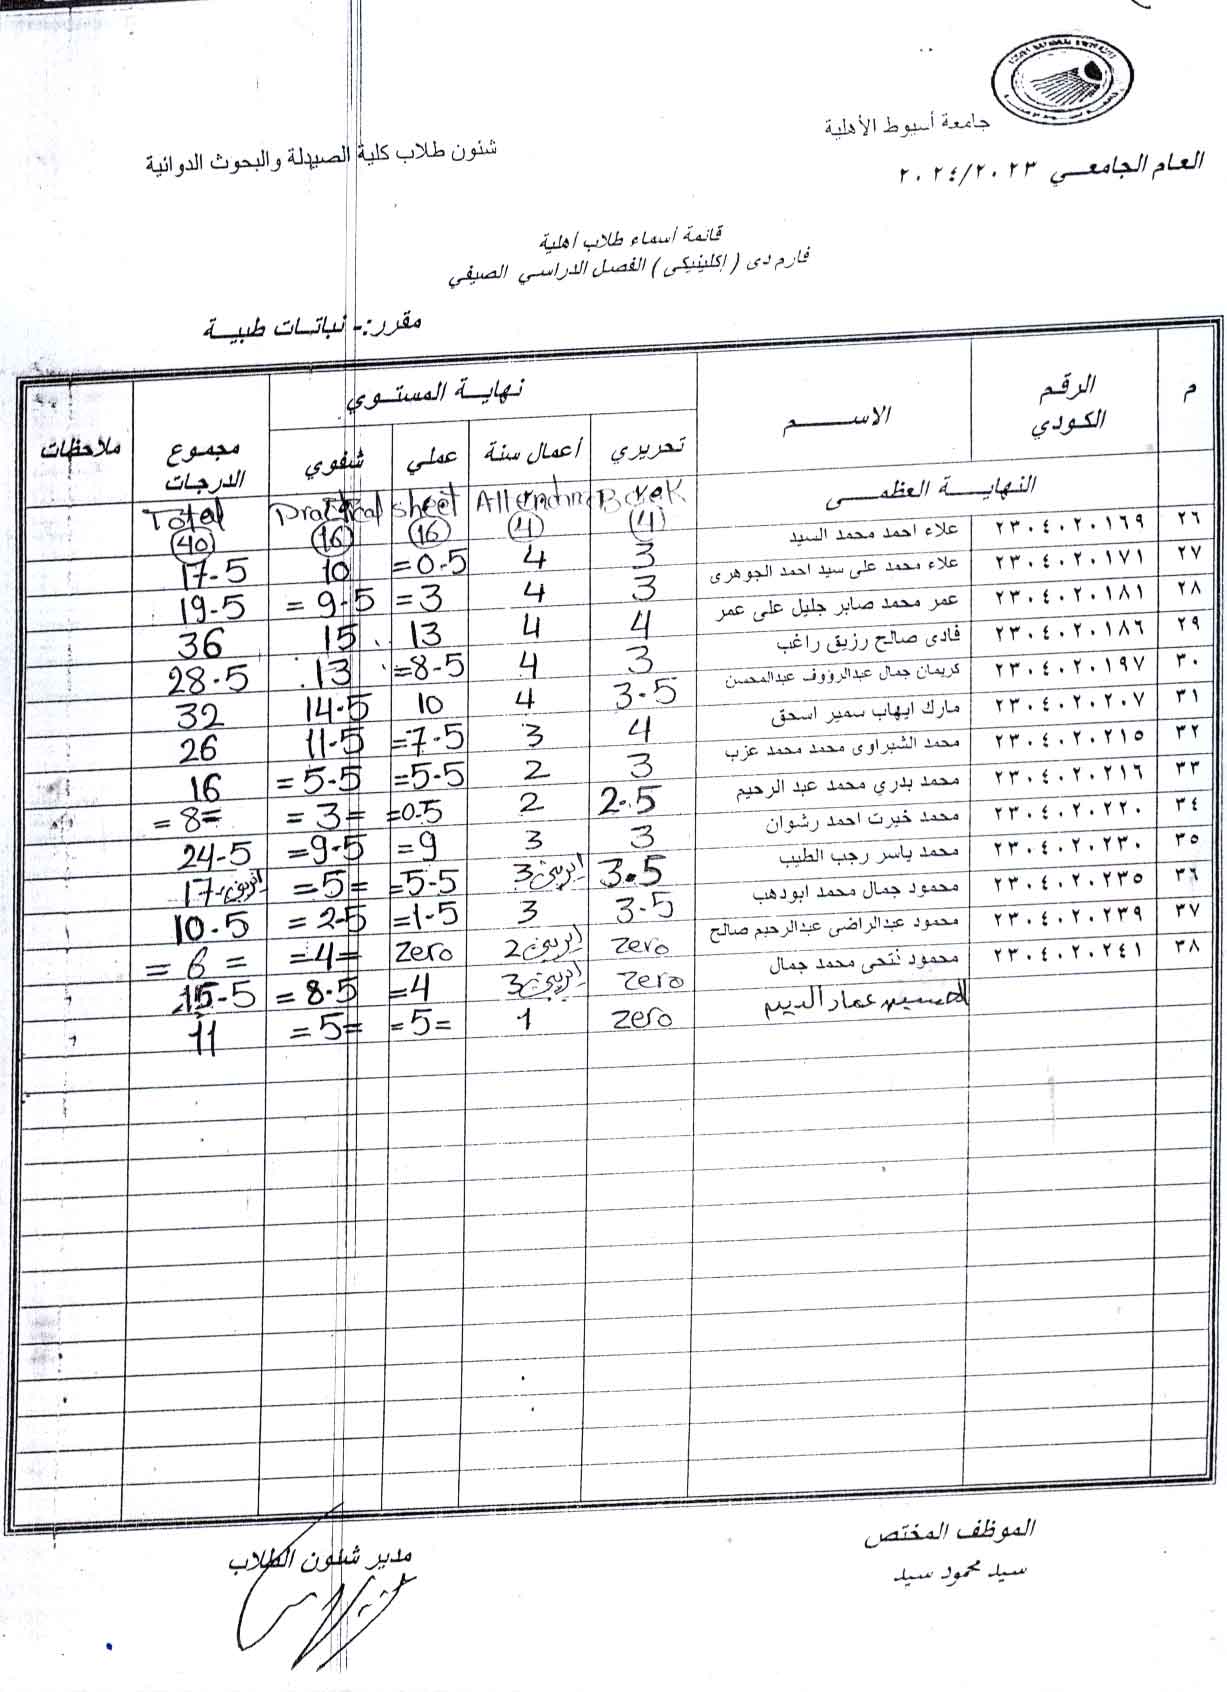 جامعة أسيوط الأهلية
شئون طلاب كلية الصيدلة والبحوث الدوائية
العام الجامعي ٢٠٢٤/٢٠٢٣
قائمة أسماء طلاب أهلية
فارم دى (إكلينيكى) الفصل الدراسي الصيفي
مقرر:- نباتات طبية
م الرقم الكودي الاسم نهاية المستوي مجموع الدرجات ملاحظات
تحريري أعمال سنة عملي شفوي
النهاية العظمى (4) (4) sheet (16) Practical (16) Total (40)
٢٦ ٢٣٠٤٠٢٠١٦٩ علاء احمد محمد السيد 3 4 =0.5 10 17-5
٢٧ ٢٣٠٤٠٢٠١٧١ علاء محمد على سيد احمد الجوهرى 3 4 =3 =9-5 19-5
٢٨ ٢٣٠٤٠٢٠١٨١ عمر محمد صابر جليل على عمر 4 4 13 15 36
٢٩ ٢٣٠٤٠٢٠١٨٦ فادى صالح رزيق راغب 3 4 =8-5 13 28-5
٣٠ ٢٣٠٤٠٢٠١٩٧ كريمان جمال عبدالرؤوف عبدالمحسن 3-5 4 10 14-5 32
٣١ ٢٣٠٤٠٢٠٢٠٧ مارك ايهاب سمير اسحق 4 3 =7-5 11-5 26
٣٢ ٢٣٠٤٠٢٠٢١٥ محمد الشبراوى محمد محمد عزب 3 2 =5-5 =5-5 16
٣٣ ٢٣٠٤٠٢٠٢١٦ محمد بدري محمد عبد الرحيم 2.5 2 =0.5 =3= =8=
٣٤ ٢٣٠٤٠٢٠٢٢٠ محمد خيرت احمد رشوان 3 3 =9 =9-5 24-5
٣٥ ٢٣٠٤٠٢٠٢٣٠ محمد ياسر رجب الطيب 3.5 3 =5-5 =5= 17
٣٦ ٢٣٠٤٠٢٠٢٣٥ محمود جمال محمد ابودهب 3-5 3 =1-5 =2-5 10-5
٣٧ ٢٣٠٤٠٢٠٢٣٩ محمود عبدالراضى عبدالرحيم صالح zero 2 zero =4= =6=
٣٨ ٢٣٠٤٠٢٠٢٤١ محمود فتحى محمد جمال zero 3 =4 =8-5 15-5
الحسين عمار zero 1 =5= =5= 11
الموظف المختص
مدير شئون الطلاب
سيد محمود سيد